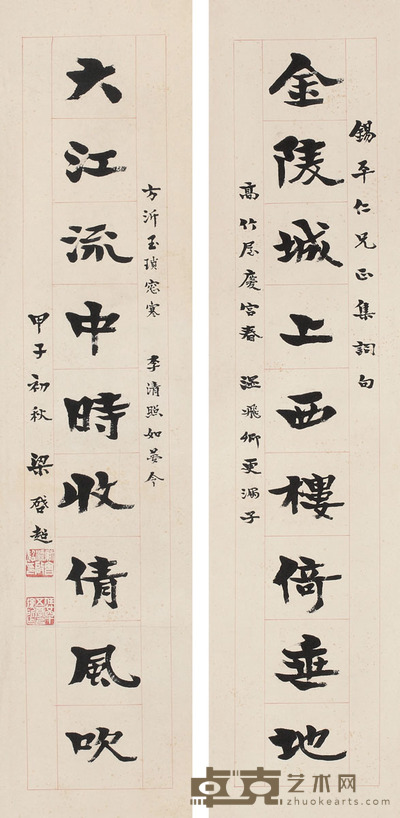 錫平仁兄正集詞句
金陵城上西樓倚垂地
高竹屋慶宮春 溫飛卿更漏子
方沂玉瑣窓寒 李清照如夢令
大江流中時收倩風吹
甲子初秋 梁啓超
卓克艺术网
zhuokearts.com